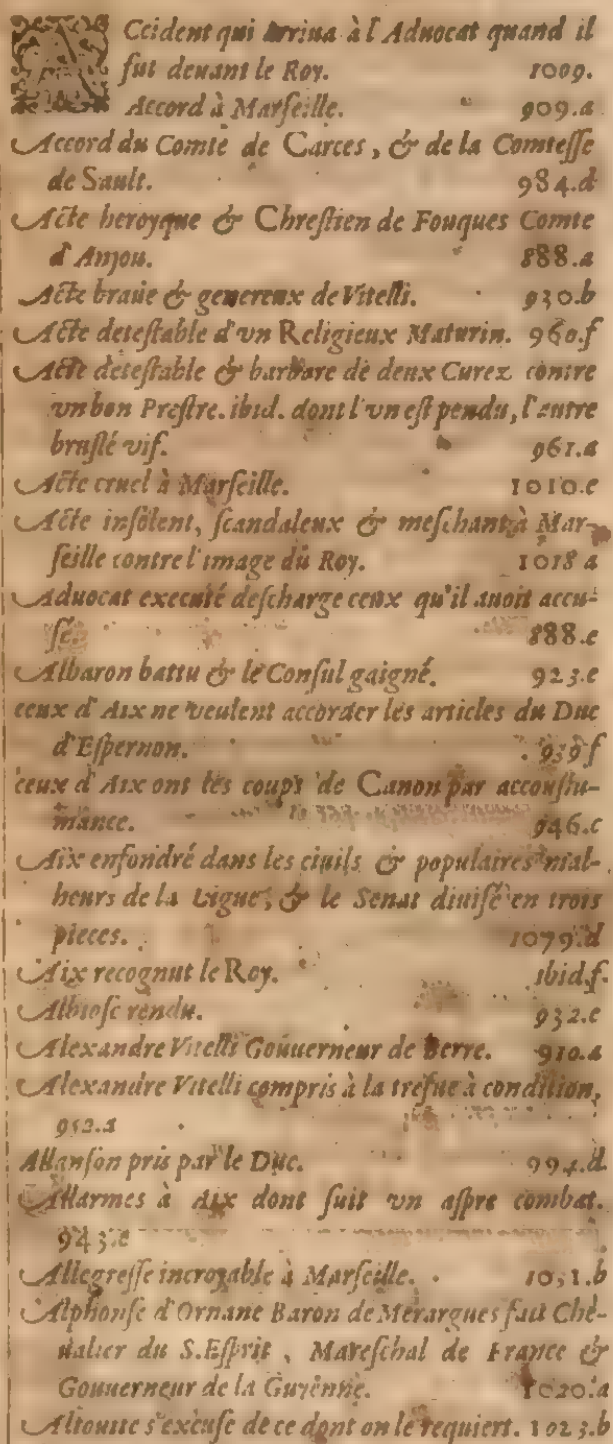 ACcident qui arriua à l'Aduocat quand il
fut deuant le Roy. 1009.
Accord à Marseille. 909.a
Accord du Comte de Carces, & de la Comtesse
de Sault. 984.d
Acte heroyque & Chrestien de Fouques Comte
d'Anjou. 888.a
Acte braue & genereux de Vitelli. 930.b
Acte detestable d'vn Religieux Maturin. 960.f
Acte detestable & barbare de deux Curez contre
vn bon Prestre. ibid. dont l'vn est pendu, l'autre
bruslé vif. 961.a
Acte cruel à Marseille. 1010.e
Acte insolent, scandaleux & meschant à Mar-
seille contre l'image du Roy. 1018 a
Aduocat executé descharge ceux qu'il auoit accu-
sé. 888.e
Albaron battu & le Consul gaigné. 923.e
ceux d'Aix ne veulent accorder les articles du Duc
d'Espernon. 939 f
ceux d'Aix ont les coups de Canon par accoustu-
mance. 946.c
Aix enfondré dans les ciuils & populaires mal-
heurs de la Ligue, & le Senat diuisé en trois
pieces. 1079.d
Aix recognut le Roy. ibid.f.
Albiosc rendu. 932.e
Alexandre Vitelli Gouuerneur de Berre. 910.a
Alexandre Vitelli compris à la trefue à condition,
952.a
Allanson pris par le Duc. 994.d.
Allarmes à Aix dont suit vn aspre combat.
943.e
Allegresse incroyable à Marseille. 1051.b
Alphonse d'Ornane Baron de Merargues fait Che-
ualier du S.Esprit, Mareschal de France &
Gouuerneur de la Guyenne. 1020.a
Altouite s'excuse de ce dont on le requiert. 1023.b